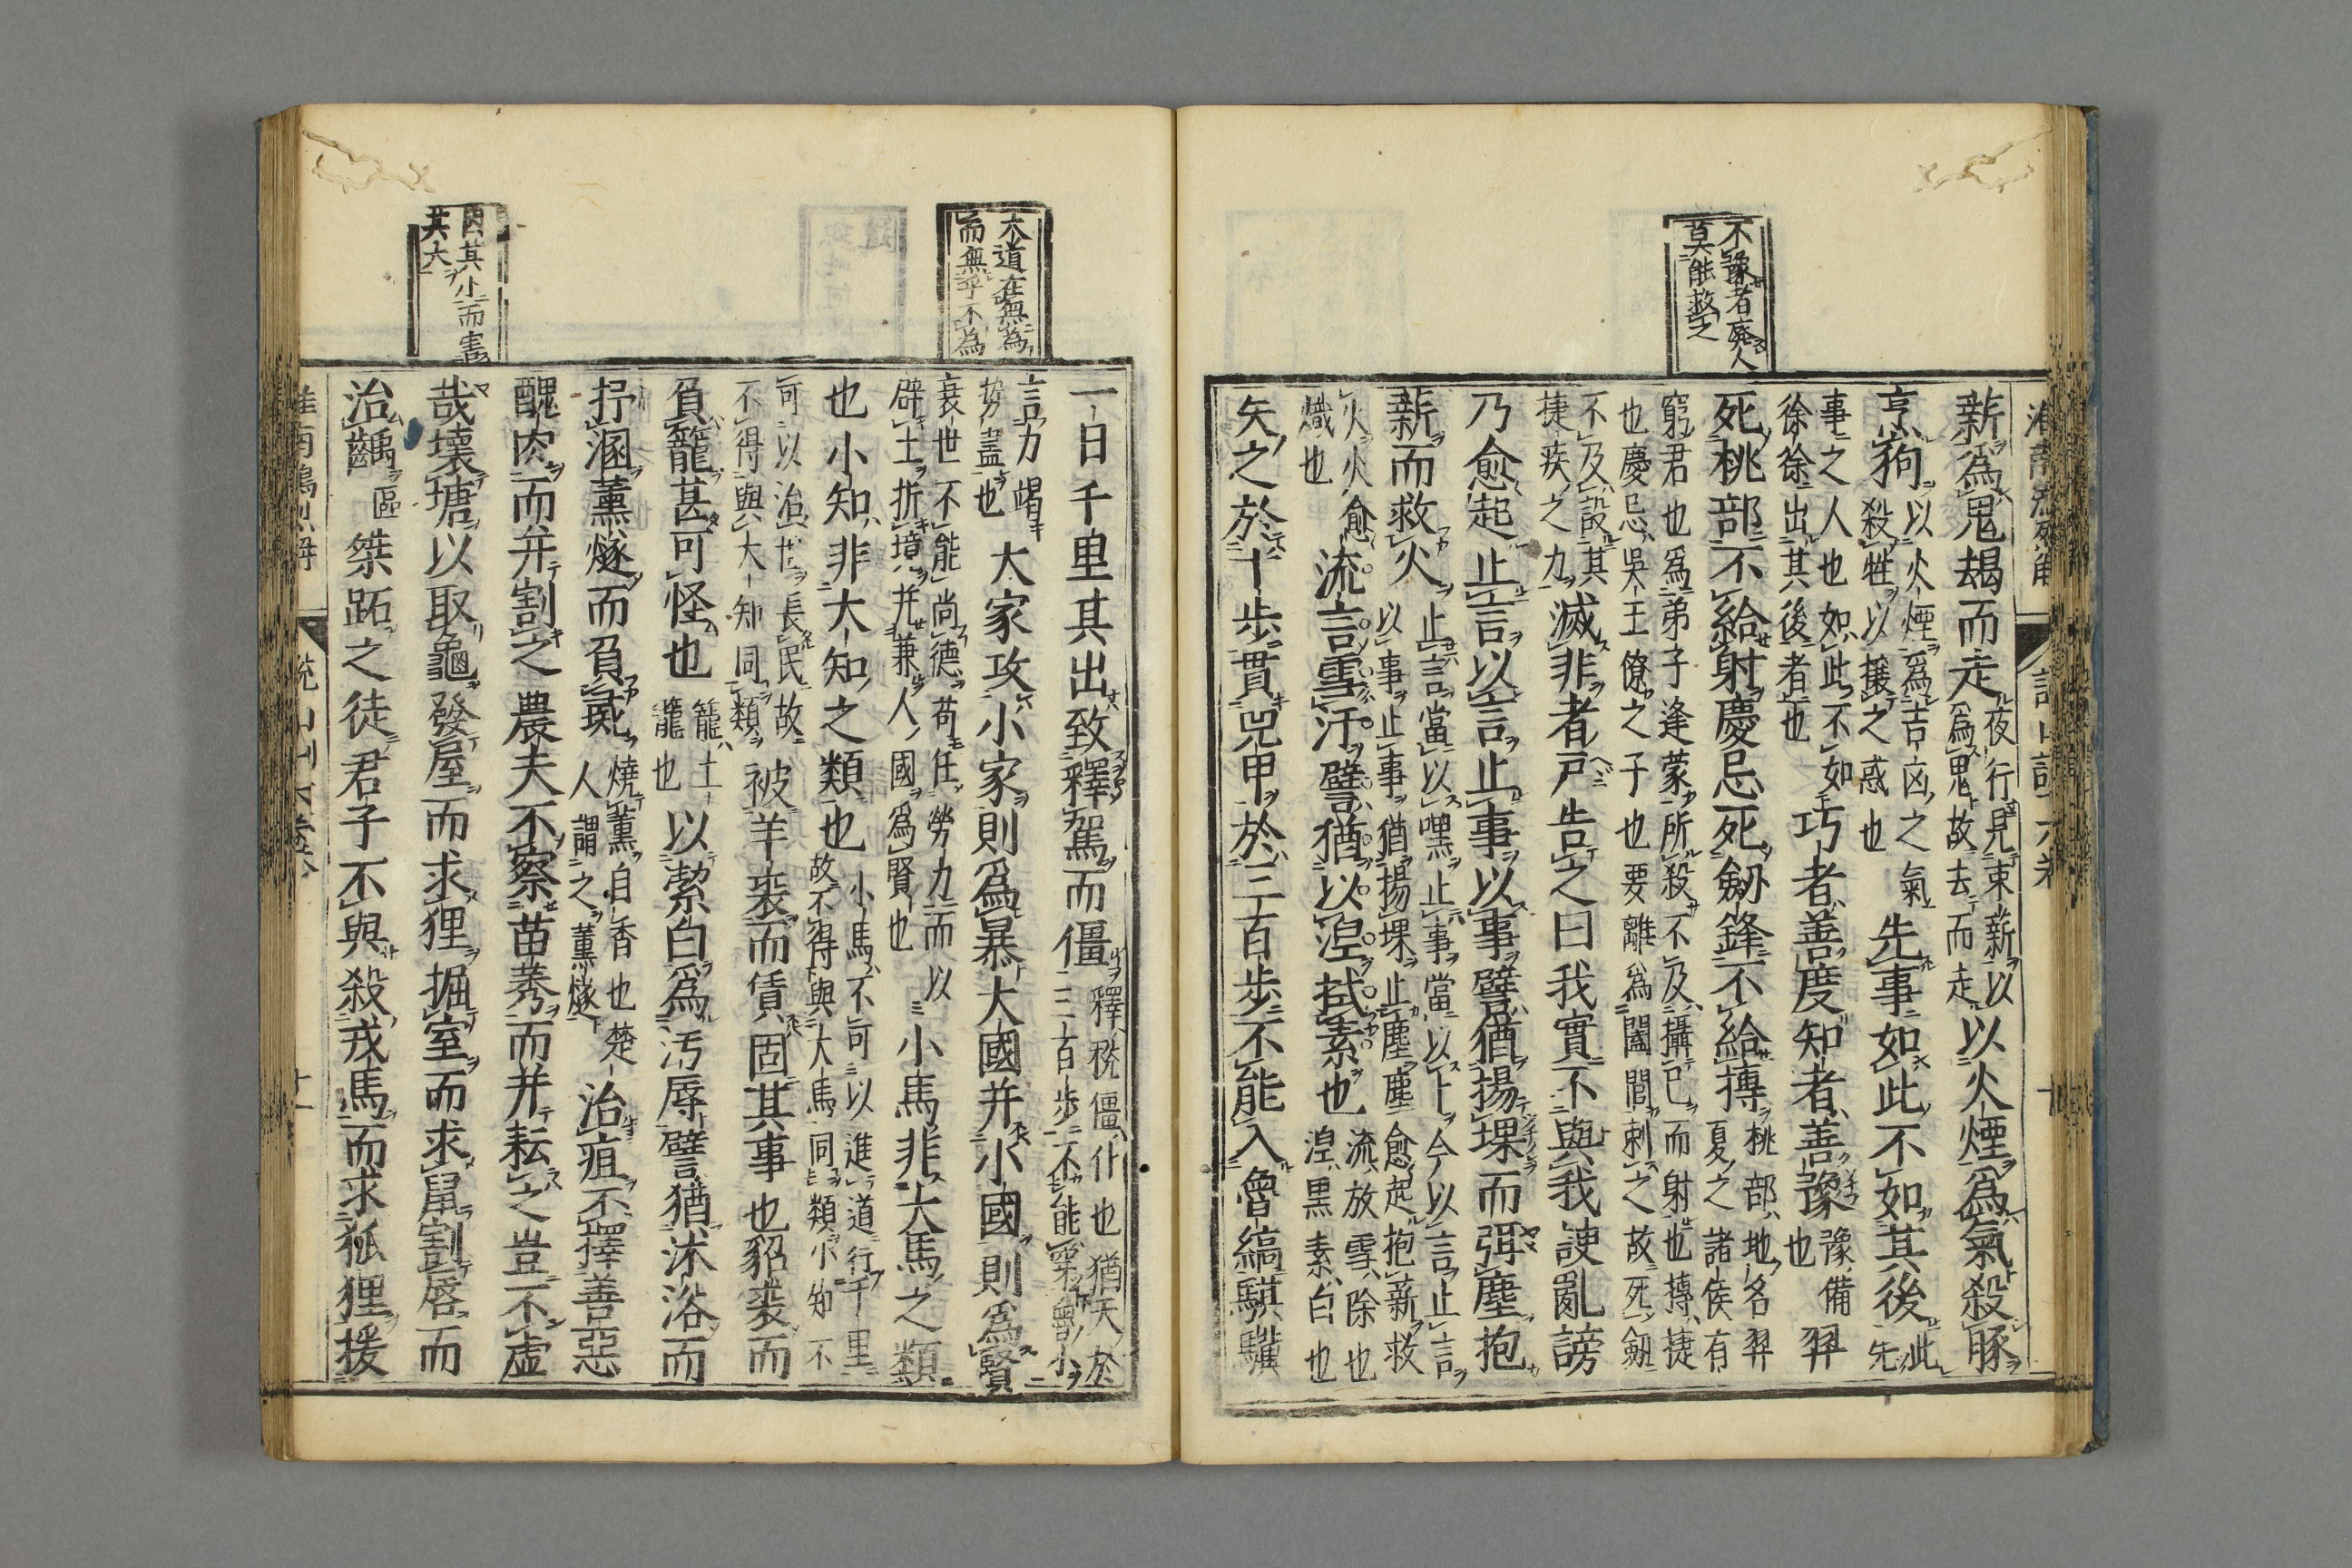 不豫者廢人
莫能救之
薪爲鬼朅而走
夜行見束薪以
爲鬼故去而走
以火煙爲氣殺豚
烹狗
以火煙爲吉凶之氣
殺牲以攘之惑也
先事如此不如其後
此
先
事之人也如此不如
徐徐出其後者也
巧者善度知者善豫
豫備
也
羿
死桃部不給射慶忌死劒鋒不給搏
桃部地名羿
夏之諸侯有
窮君也爲弟子逢蒙所殺不及攝已而射也搏捷
也慶忌吳王僚之子也要離爲闔閭刺之故死劒
不及設其
捷疾之力
滅非者戸告之曰我實不與我諛亂謗
乃愈起止言以言止事以事譬猶揚堁而弭塵抱
薪而救火
止言當以嘿止事當以卜今以言止言
以事止事猶揚堁止塵塵愈起抱薪救
火火愈
熾也
流言雪汙譬猶以涅拭素也
流放雪除也
涅黑素白也
矢之於十步貫兕甲於三百步不能入魯縞騏驥
大道在無爲
而無乎不爲
因其小而害
其大
一日千里其出致釋駕而僵
釋稅僵仆也猶矢於
三百步不能穿魯小
言力竭
勢盡也
大家攻小家則爲暴大國并小國則爲賢
衰世不能尚德苟任勞力而以
辟土折境并兼人國爲賢也
小馬非大馬之類
也小知非大知之類也
小馬不可以進道行千里
故不得與大馬同類小知不
可以治世長民故
不得與大知同類
被羊裘而賃固其事也貂裘而
負籠甚可怪也
籠土
籠也
以潔白爲汚辱譬猶沐浴而
抒溷薰燧而負彘
燒薰自香也楚
人謂之薰燧
治疽不擇善惡
醜肉而并割之農夫不察苗莠而并耘之豈不虛
哉壞塘以取龜發屋而求狸掘室而求鼠割唇而
治齲
區
桀跖之徒君子不與殺戎馬而求狐狸援